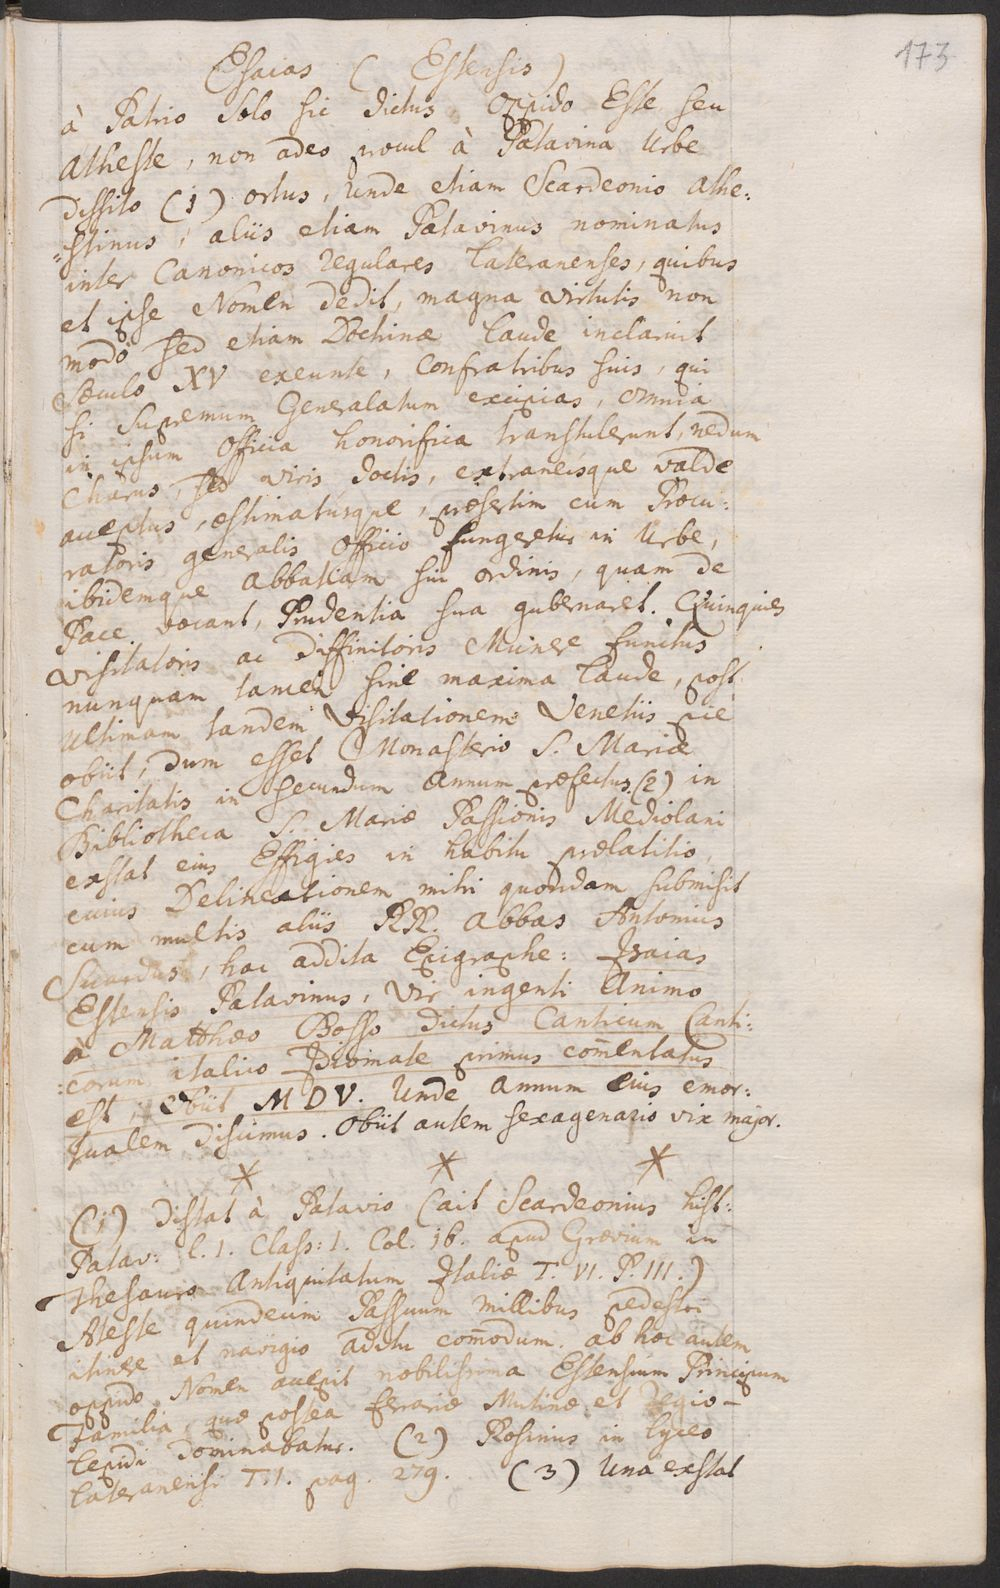 173
Esaias ( Estensis)
à Patrio Solo sic dictus, Oppido Este seu
Atheste, non adeo procul à Patavina Urbe
dissito (1) ortus, unde etiam Scardeonio Athe:
=stinus, aliis etiam Patavinus nominatus
inter Canonicos regulares Lateranenses, quibus
et ipse Nomen dedit, magna virtutis non
modò sed etiam Doctrinæ laude inclaruit
Sæculo XV exeunte, Confratribus suis, qui
si Supremum Generalatum excipias, omnia
in ipsum Officia honorifica transtulerunt, nedum
Charus, sed viris doctis, extraneisque valde
acceptus, æstimatusque, præsertim cum Procu:
ratoris generalis Officio fungeretur in Urbe,
ibidemque Abbatiam sui ordinis, quam de
Pace vocant, Prudentia sua gubernaret. Quinquies
Visitatoris ac Diffinitoris Munere functus
nunquam tamen sine maxima laude, post
ultimam tandem Visitationem Venetiis pie
obiit, dum esset Monasterio S. Mariæ
Charitatis in secundum annum præfectus. (2) in
Bibliotheca S. Mariæ Passionis Mediolani
exstat eius Effigies in habitu prælatitio,
cuius Delineationem mihi quondam submisit
cum multis aliis RR. Abbas Antonius
Suardus, hac addita Epigraphe: Isaias
Estensis Patavinus, Vir ingenti Animo
à Matthæo Bosso dictus Canticum Canti:
:corum italico Idiomate primus com̄entatus
est, Obiit MDV. Unde annum eius emor:
tualem discimus. Obiit autem sexagenario vix major.
* * *
(1) Distat à Patavio (ait Scardeonius hist:
Patav: l. 1. Class: 1. Col. 16. apud Grævium in
Thesauro Antiquitatum Italiæ T. VI. P. III.)
Ateste quindecim Passuum millibus pedestri
itinere et navigio aditu com̄odum. ab hoc autem
oppido Nomen accepit nobilissima Estensium Principum
Familia, quæ postea Ferrariæ Mutinæ et Regio-
Lepidi dominabatur. (2) Rosinius in Lyceo
Lateranensi T. I. pag. 279. (3) Una exstat